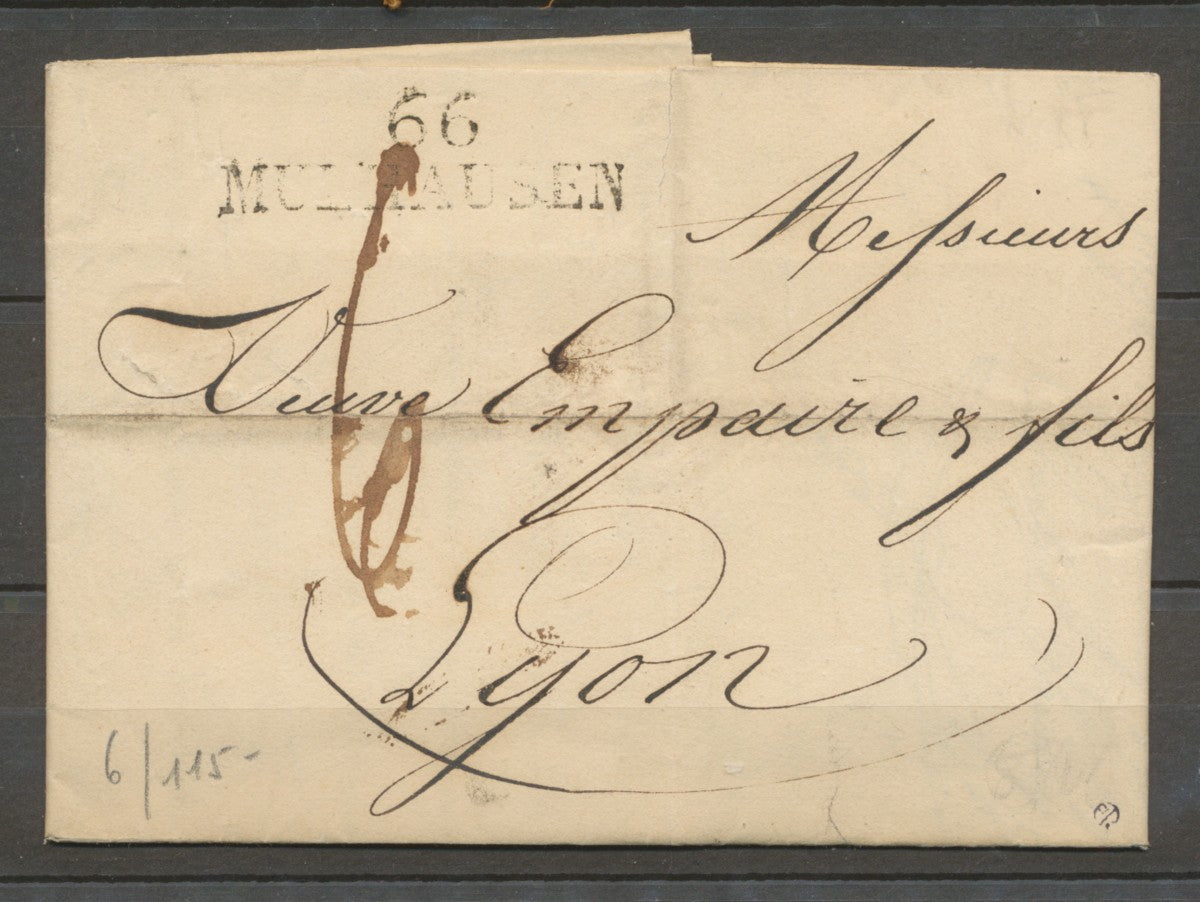 66
MULHAUSEN
Messieurs
Veuve Empaire & fils
6
Lyon
6/115-